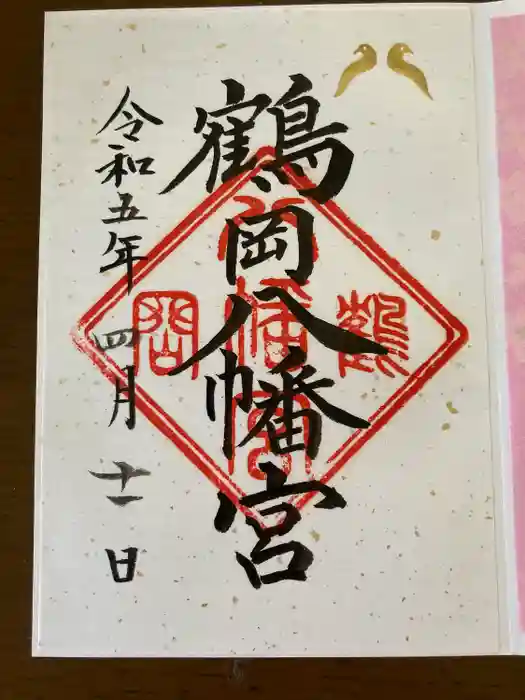 鶴岡八幡宮
令和五年 四月 十一日
鶴
岡
八幡宮